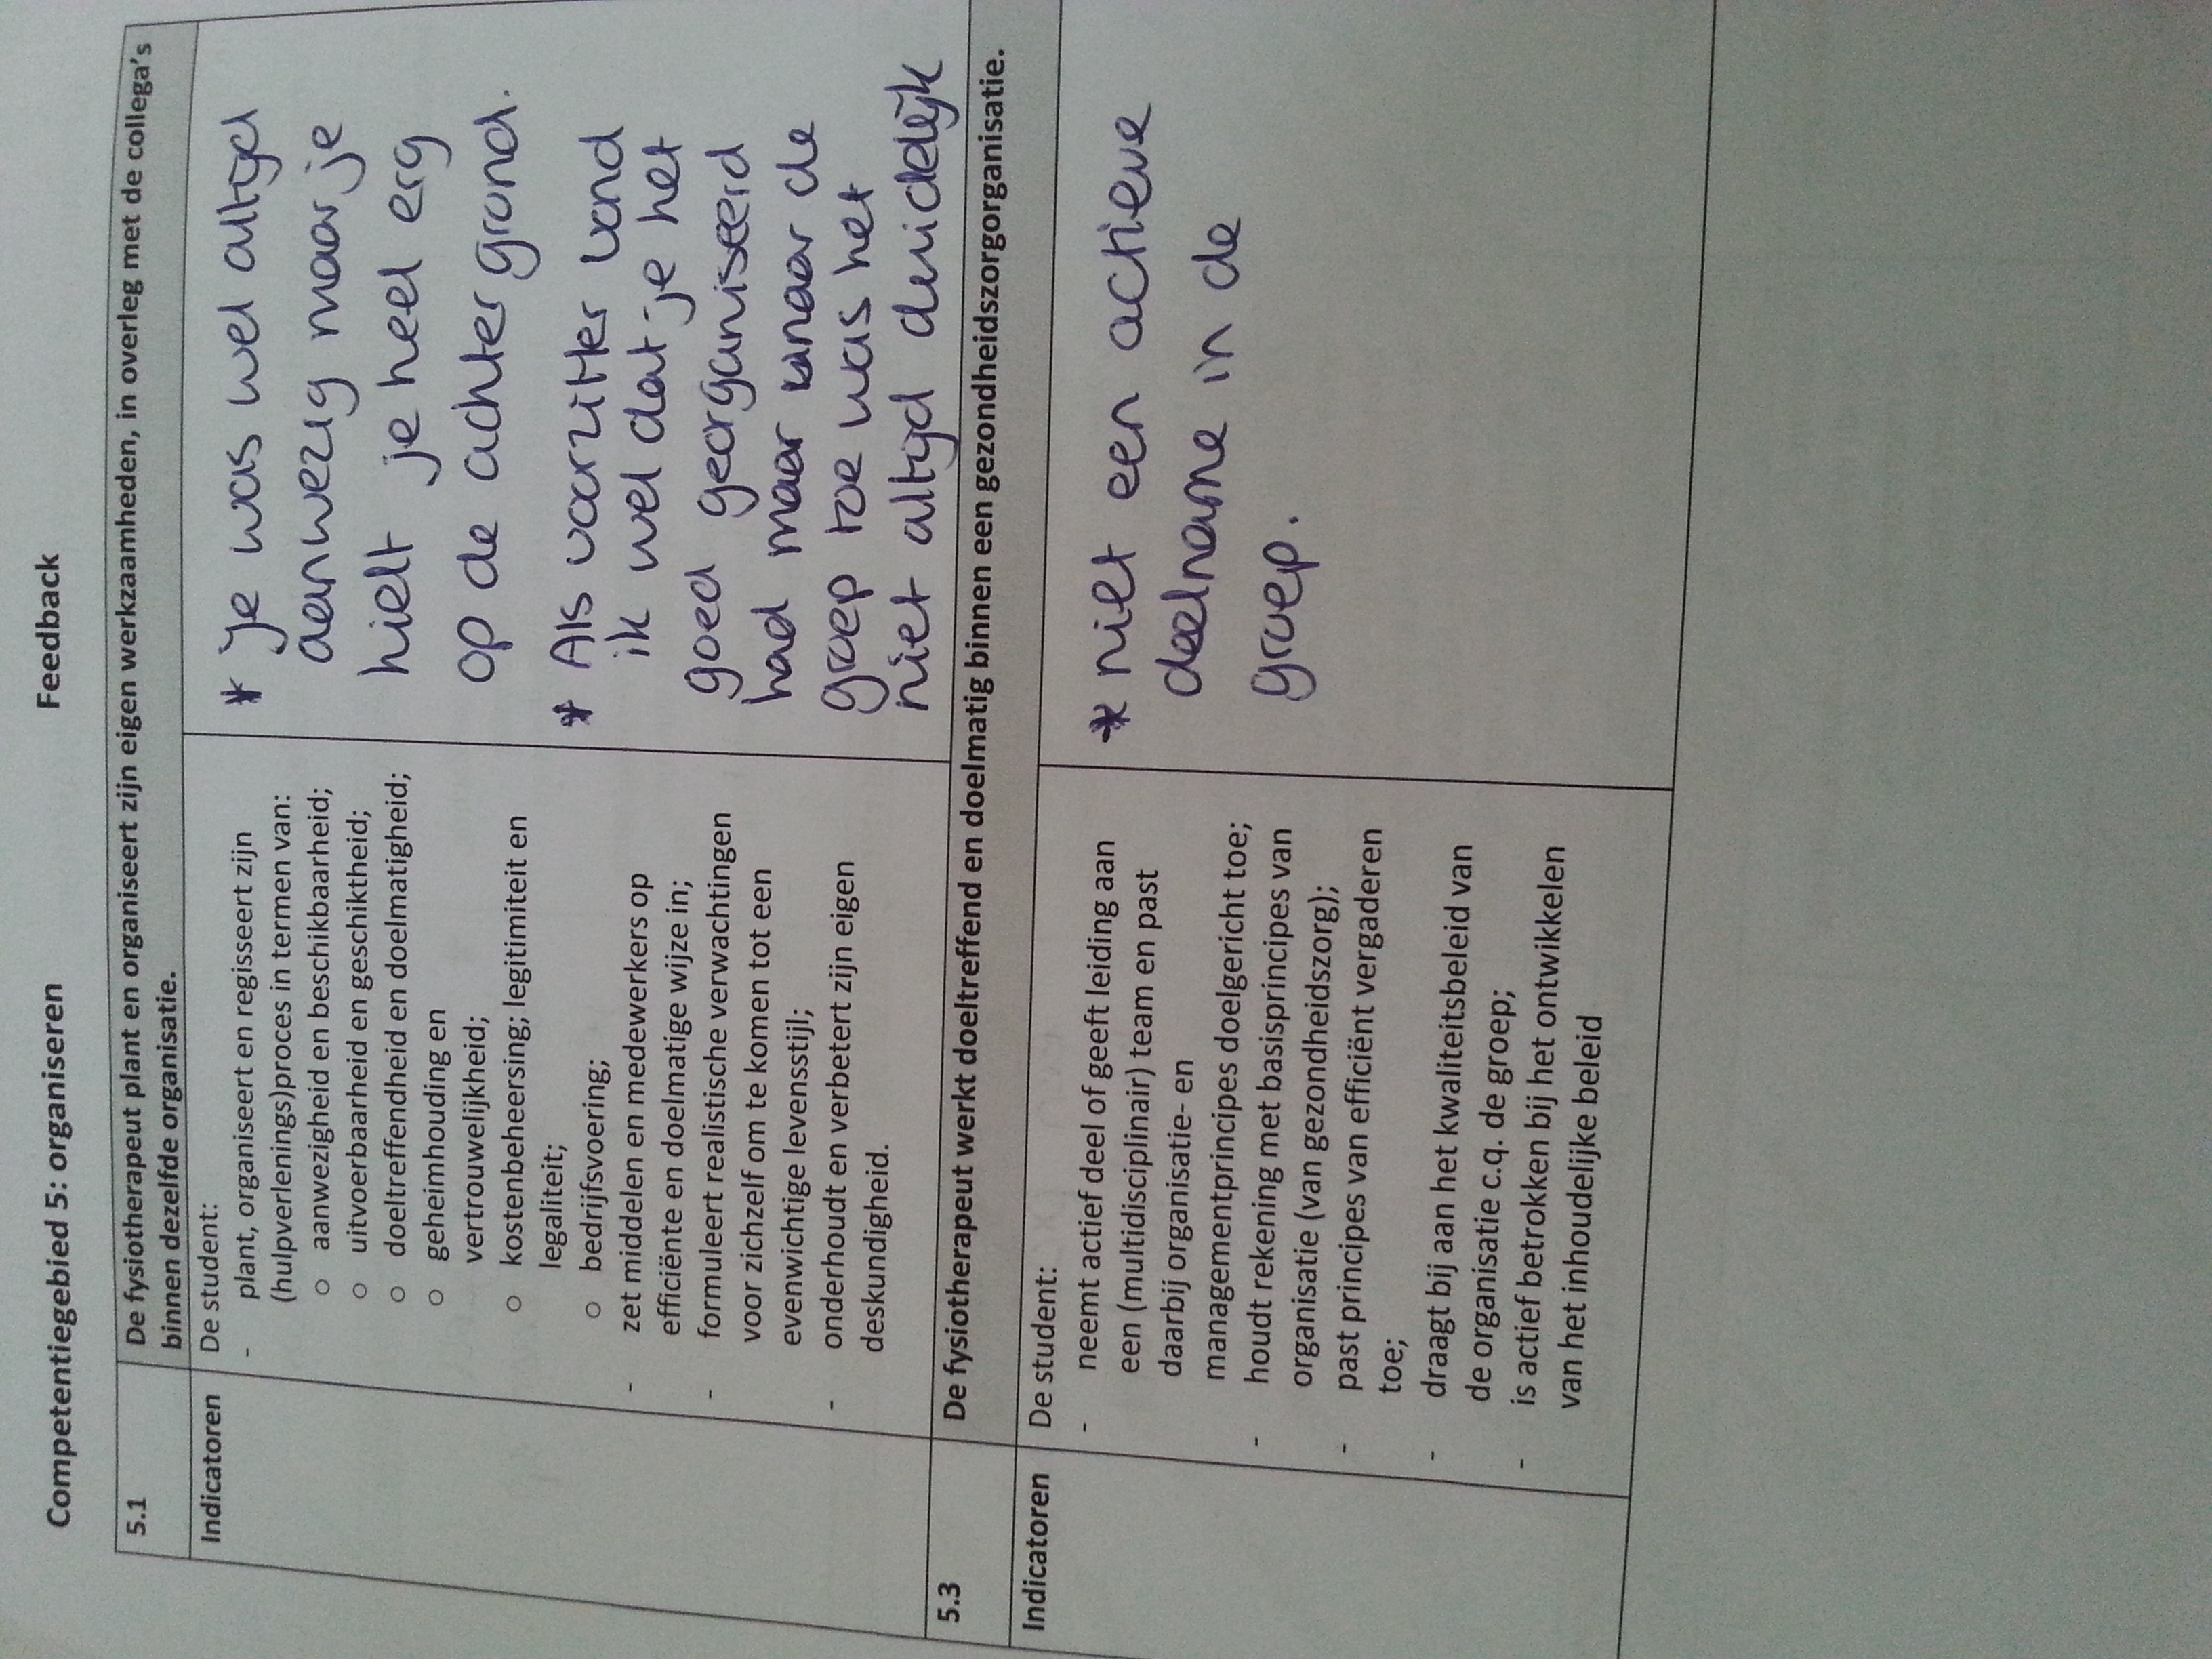 Competentiegebied 5: organiseren Feedback
5.1 De fysiotherapeut plant en organiseert zijn eigen werkzaamheden, in overleg met de collega's
binnen dezelfde organisatie.
Indicatoren De student:
- plant, organiseert en regisseert zijn
(hulpverlenings)proces in termen van:
○ aanwezigheid en beschikbaarheid;
○ uitvoerbaarheid en geschiktheid;
○ doeltreffendheid en doelmatigheid;
○ geheimhouding en
vertrouwelijkheid;
○ kostenbeheersing; legitimiteit en
legaliteit;
○ bedrijfsvoering;
- zet middelen en medewerkers op
efficiënte en doelmatige wijze in;
- formuleert realistische verwachtingen
voor zichzelf om te komen tot een
evenwichtige levensstijl;
- onderhoudt en verbetert zijn eigen
deskundigheid.
* Je was wel altijd
aanwezig maar je
hielt je heel erg
op de achtergrond.
* Als voorzitter vond
ik wel dat je het
goed georganiseerd
had maar naar de
groep toe was het
niet altijd duidelijk
5.3 De fysiotherapeut werkt doeltreffend en doelmatig binnen een gezondheidszorgorganisatie.
Indicatoren De student:
- neemt actief deel of geeft leiding aan
een (multidisciplinair) team en past
daarbij organisatie- en
managementprincipes doelgericht toe;
- houdt rekening met basisprincipes van
organisatie (van gezondheidszorg);
- past principes van efficiënt vergaderen
toe;
- draagt bij aan het kwaliteitsbeleid van
de organisatie c.q. de groep;
- is actief betrokken bij het ontwikkelen
van het inhoudelijke beleid
* niet een actieve
deelname in de
groep.